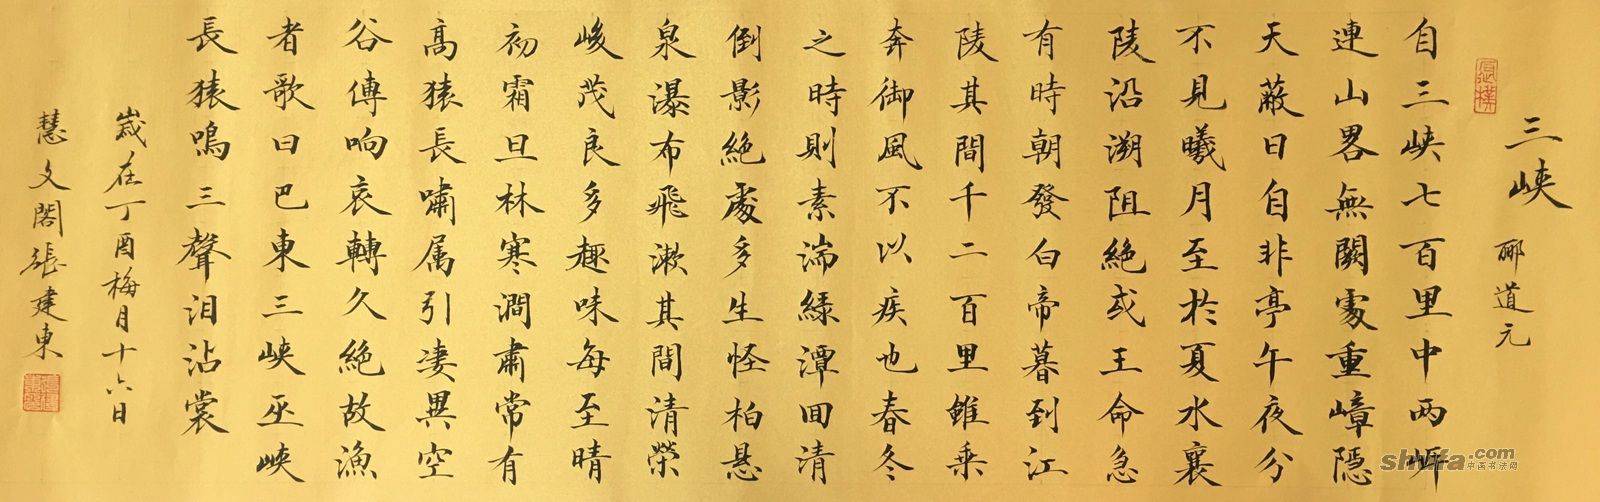 三峡
郦道元
自三峡七百里中两岸
連山畧無闕處重嶂隱
天蔽日自非亭午夜分
不見曦月至於夏水襄
陵沿溯阻絶或王命急
有時朝發白帝暮到江
陵其間千二百里雖乘
奔御風不以疾也春冬
之時則素湍緑潭回清
倒影絶處多生怪柏悬
泉瀑布飛漱其間清榮
峻茂良多趣味每至晴
初霜旦林寒澗肅常有
高猿長嘯属引凄異空
谷傳响哀轉久絶故漁
者歌曰巴東三峡巫峡
長猿鳴三聲泪沾裳
歲在丁酉梅月十六日
慧文閣張建東
shufa.com
中国书法网